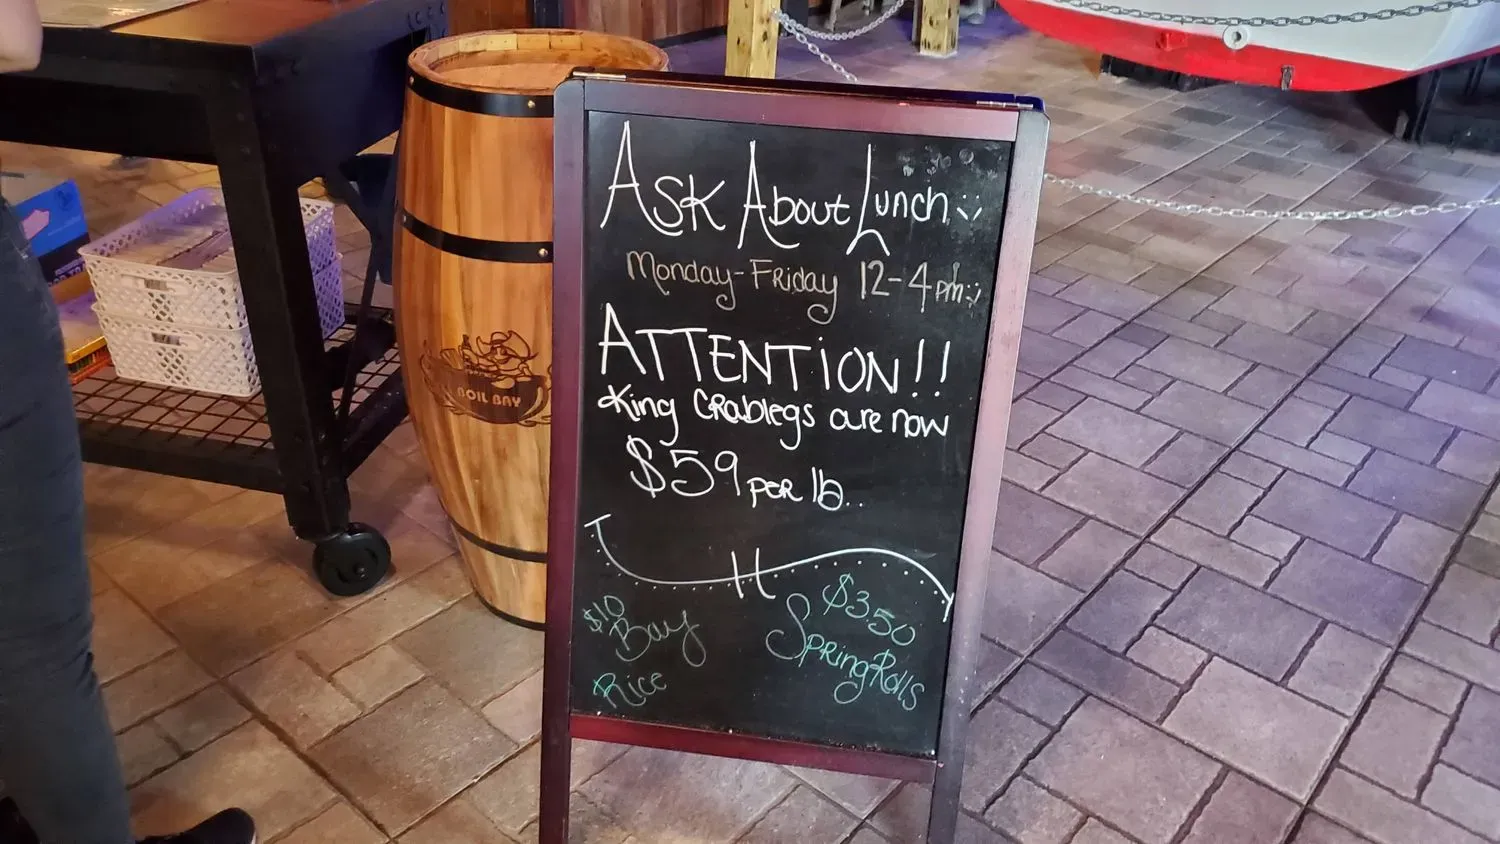 Ask About Lunch :)
Monday-Friday 12-4pm :)
ATTENTiON!!
King CRablegs are now
$59 per lb..
$10
Bay
Rice
$3.50
SpRing Rolls
BOIL BAY